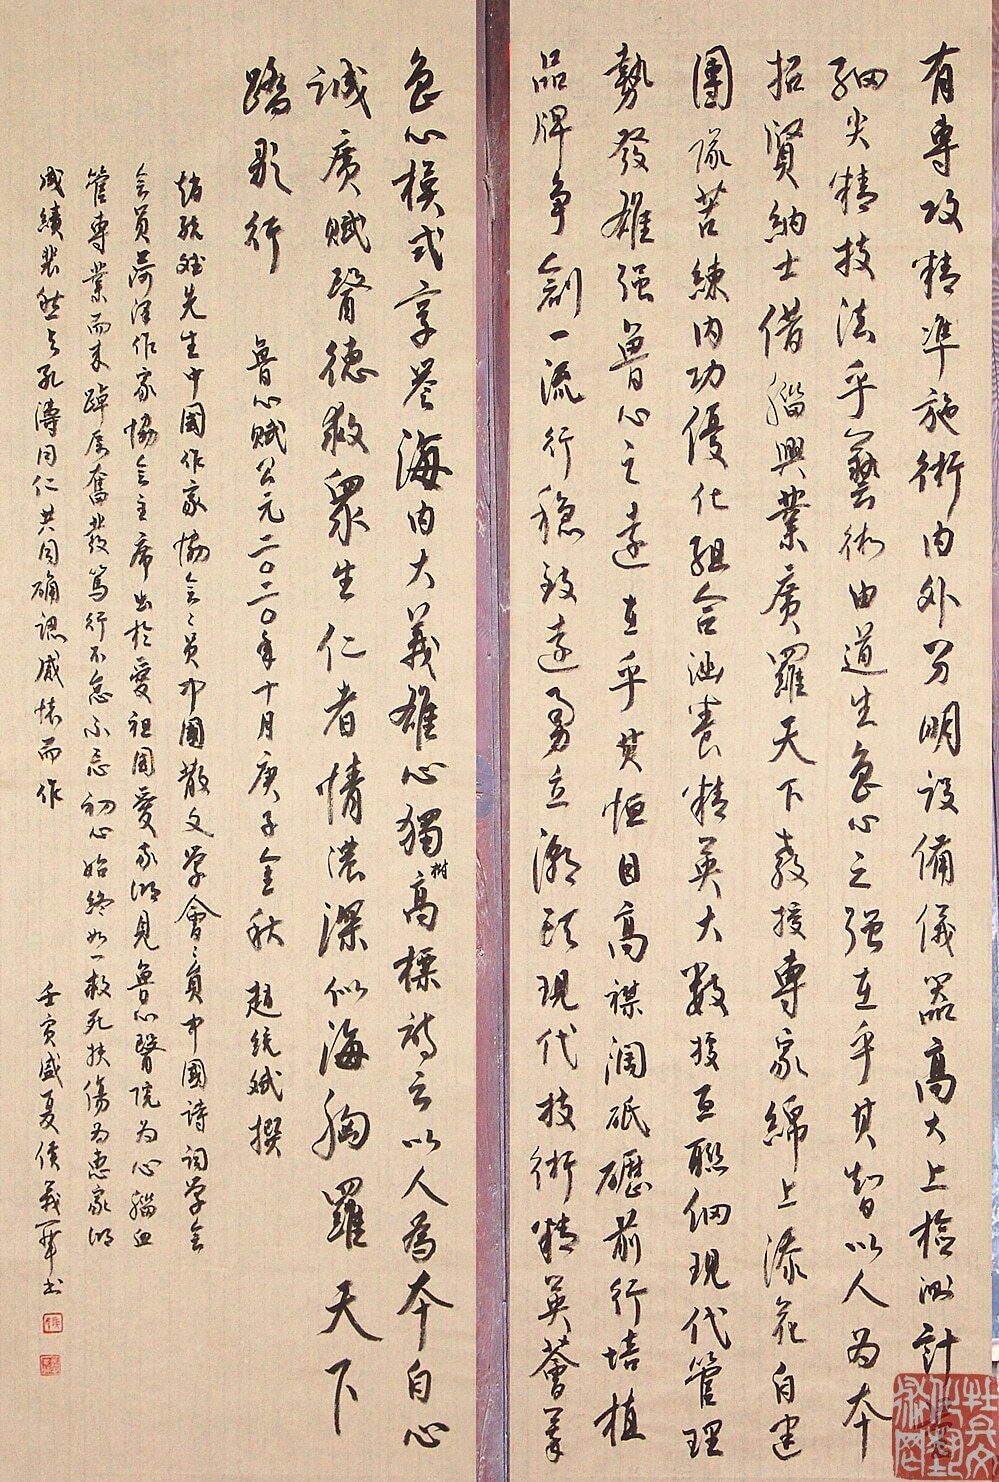 有專攻精準施術內外分明設備儀器高大上檢測計
細尖精技法乎藝術由道生魯心之強在乎其智以人為本
招賢納士借腦興業廣羅天下教授專家綿上添花自建
團隊苦練內功優化組合涵養精英大數據互聯網現代管理
勢發雄强魯心之遠在乎其恒目高謀濶砥礪前行培植
品牌爭創一流行穩致遠勇立潮頭現代技術精英薈萃
魯心模式享譽海內大義雄心獨樹高標詩云以人為本自心
誠廣賦醫德救眾生仁者情濃深似海胸羅天下
踏歌行 魯心賦公元二〇二〇年十月庚子金秋 趙統斌撰
趙統斌先生中國作家協會々員中國散文學會々員中國詩詞學會
會員菏澤作家協會主席出於愛祖國愛家鄉見魯心醫院為心腦血
管專業而來踔厲奮發篤行不怠不忘初心始終如一救死扶傷為惠家鄉
成績裴然与孔濤同仁共同确認感懷而作 壬寅盛夏侯義軍书